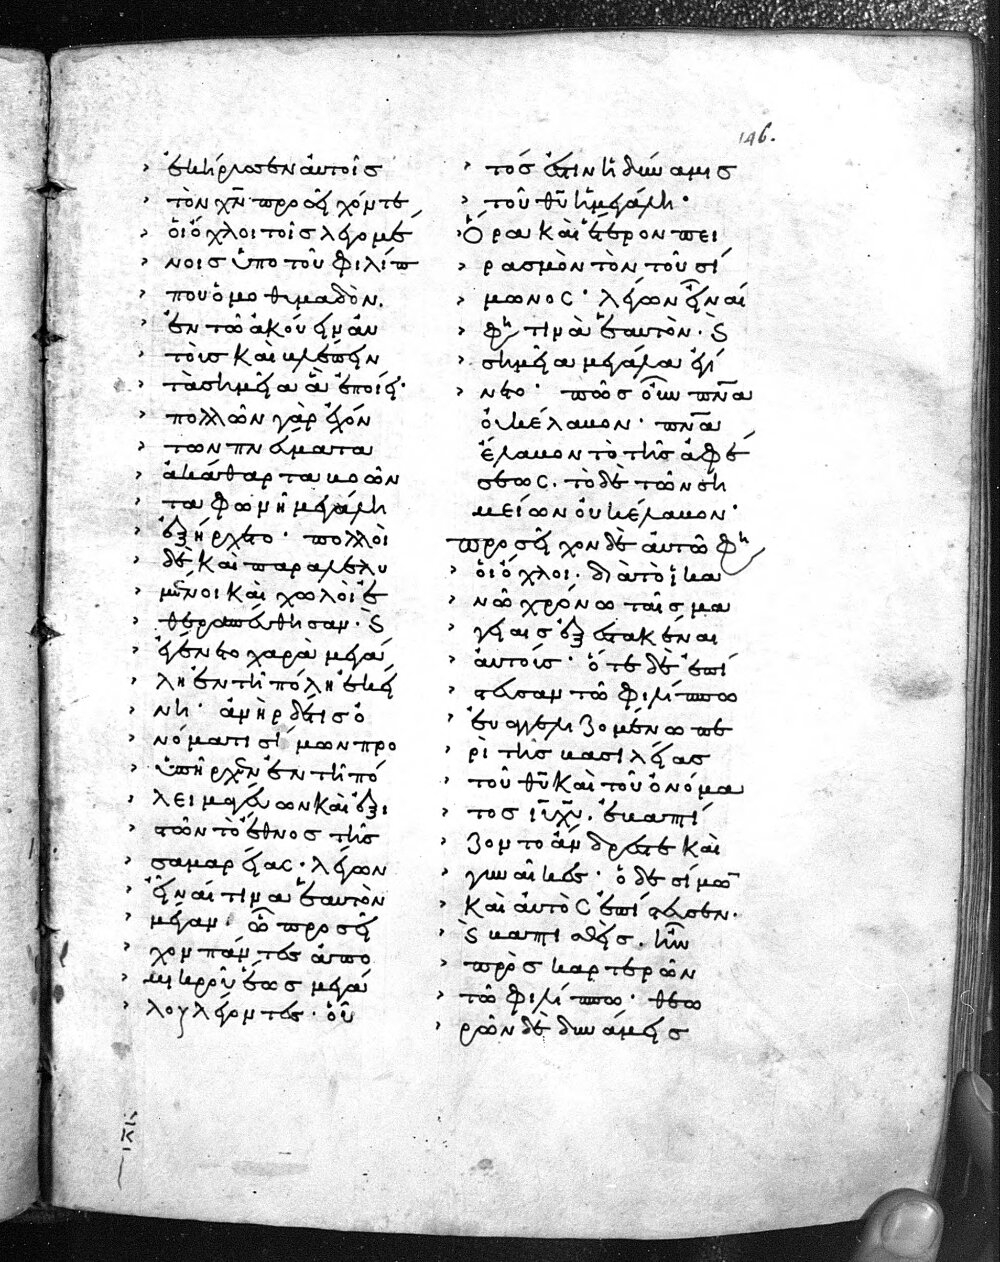 146.
ἐκήρυσσεν αὐτοῖς
τὸν χ̅ν̅ προσεῖχόν τε
οἱ ὄχλοι τοῖς λεγομέ
νοις ὑπο τοῦ φιλίπ
που ὁμοθυμαδὸν.
ἐν τῶ ἀκούειν αὐ
τοὺς καὶ βλέπειν
τὰ σημεῖα ἃ ἐποίει·
πολλῶν γὰρ ἐχόν
των πνεύματα
ἀκάθαρτα βοῶν
τα φωνῆ μεγάλη
ἐξήρχετο· πολλοὶ
δὲ καὶ παραλελυ
μένοι καὶ χωλοὶ ἐ
θεραπεύθησαν. ϛ
ἐγένετο χαρὰ μεγά
λη ἐν τῆ πόλει ἐκεί
νη· ἀνὴρ δέ τις ὀ
νόματι σίμων προ
ϋπῆρχεν ἐν τῆ πό
λει μαγεύων καὶ ἐξι
στῶν τὸ ἔθνος τῆς
σαμαρείας· λέγων
εἶναί τινα ἑαυτὸν
μέγαν· ὧ προσεῖ
χον πάντες ἀπο
μικροῦ ἕως μεγά
λου λέγοντες· οὗ
ιϛ
τός ἐστιν ἡ δύναμις
τοῦ θ̅υ̅ ἡ μεγάλη·
Ὅρα καὶ ἕτερον πει
ρασμὸν τὸν τοῦ σί
μωνος· λέγων εἶναί
φη τινὰ ἑαυτὸν. ϛ
σημεῖα μεγάλα ἐγί
νετο· πῶς οὖν πν̅α
οὐκ ἔλαβον· πν̅α
ἔλαβον τὸ τῆς ἀφέ
σεως. τὸ δὲ τῶν ση
μείων οὐκ ἔλαβον·
προσεῖχον δὲ αὐτῶ φη
οἱ ὄχλοι. διὰ τὸ ἱκα
νῶ χρόνω ταῖς μα
γείαις ἐξεστακέναι
αὐτούς· ὅτε δὲ ἐπί
στευσαν τῶ φιλίππω
εὐαγγελιζομένω πε
ρὶ τῆς βασιλείας
τοῦ θ̅υ̅ καὶ τοῦ ὀνόμα
τος ι̅υ̅ χ̅υ̅. ἐβαπτί
ζοντο ἄνδρες τε καὶ
γυναῖκες· ὁ δὲ σίμω̅
καὶ αὐτὸς ἐπίστευσεν.
ϛ βαπτισθεὶς. ἦν
προσκαρτερῶν
τῶ φιλίππω· θεω
ρῶν δὲ δυνάμεις